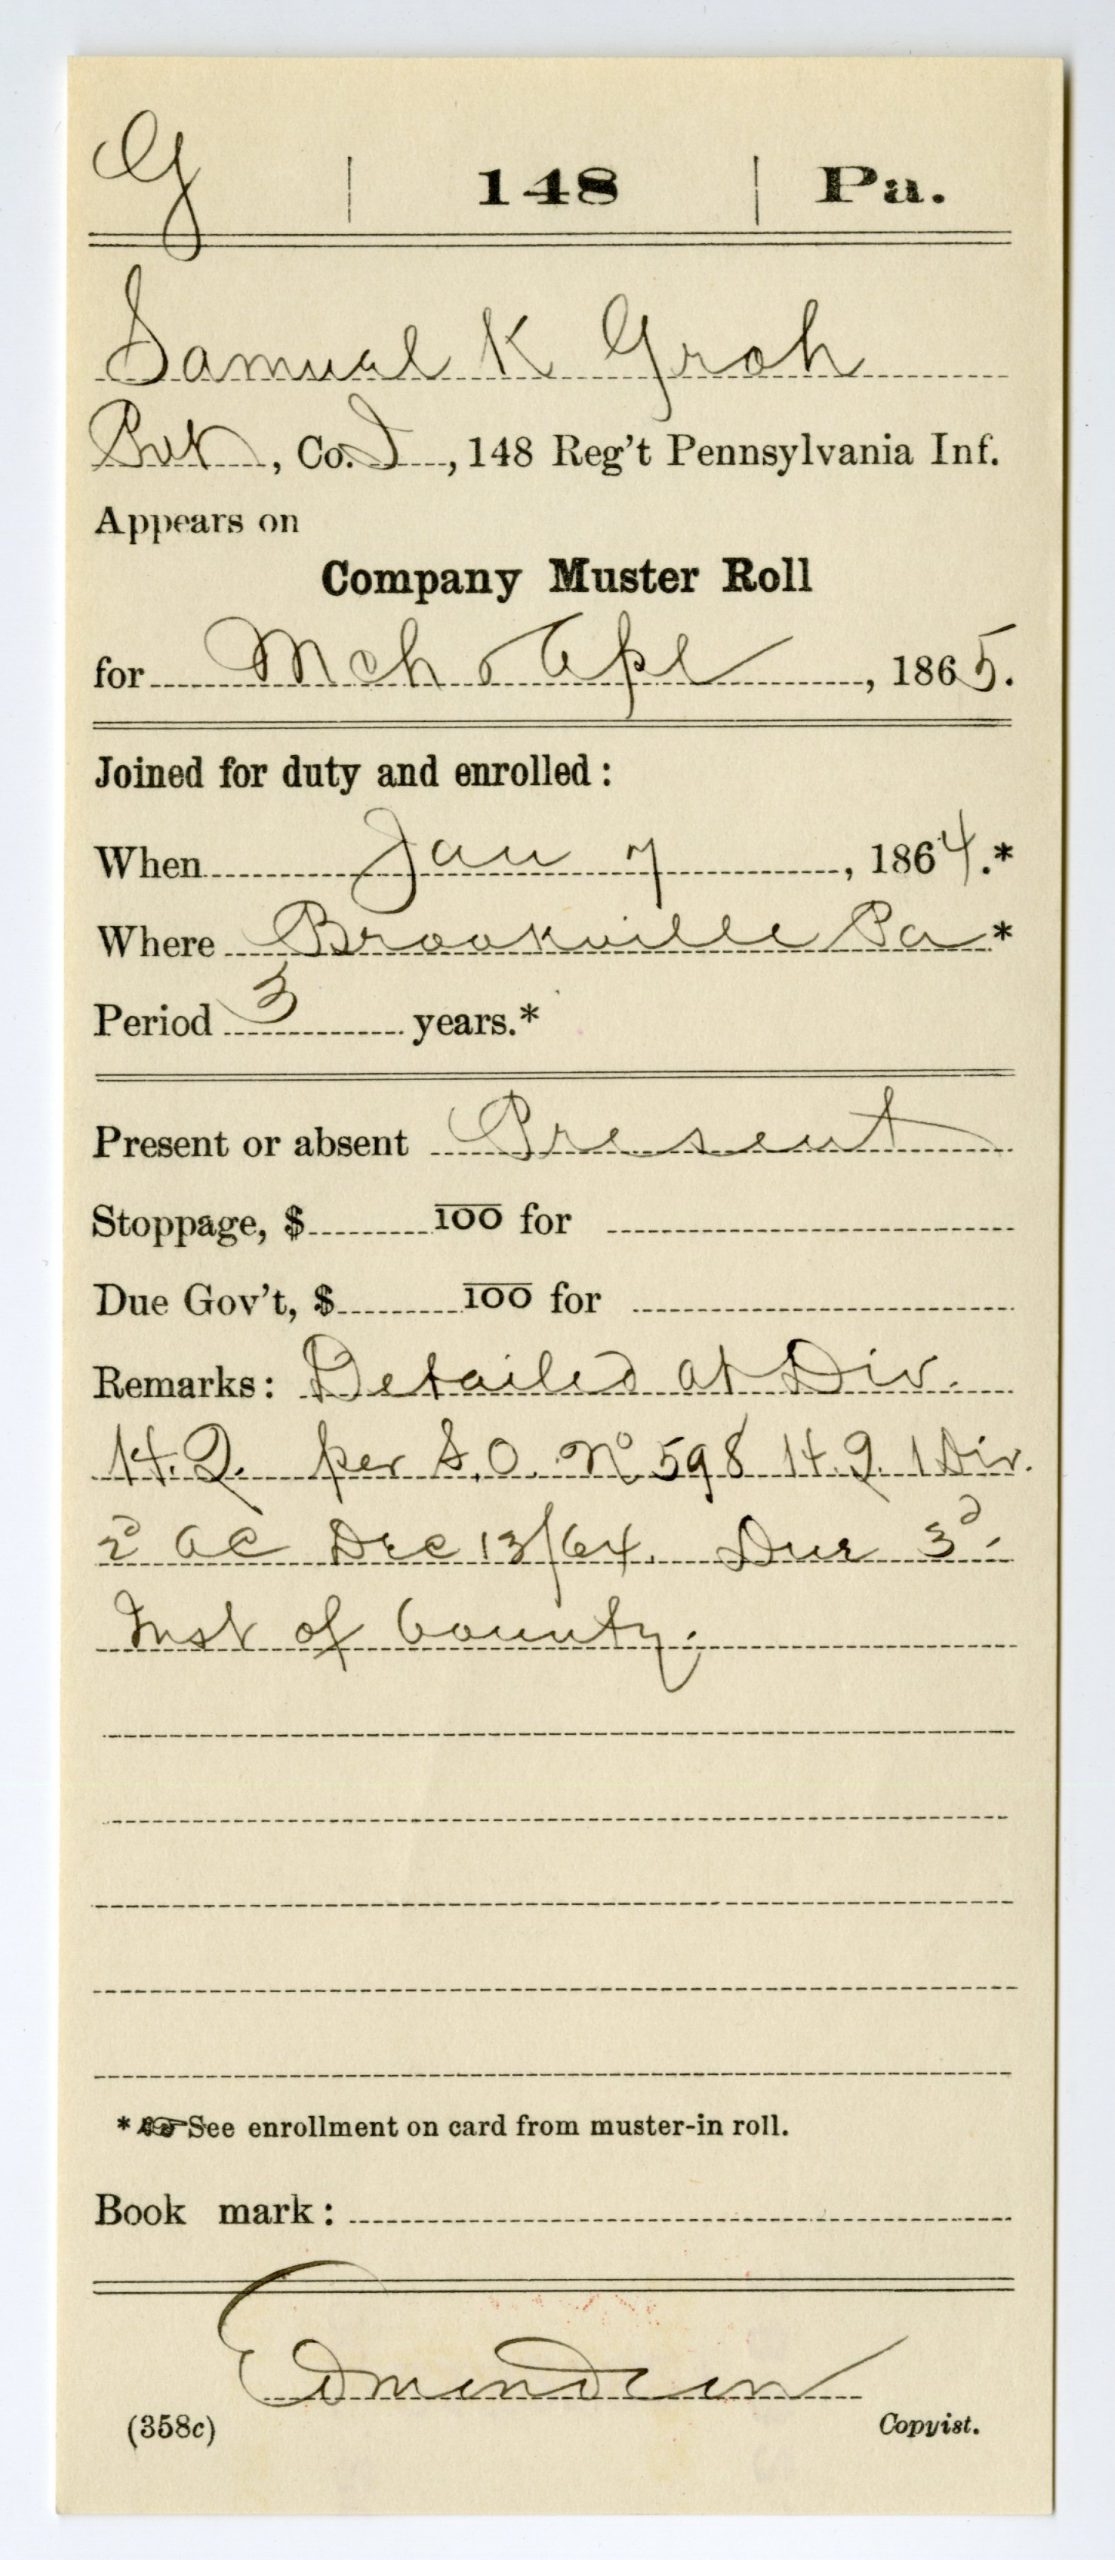 G | 148 | Pa.
Samuel K Groh
Pvt, Co. I, 148 Reg't Pennsylvania Inf.
Appears on
Company Muster Roll
for Mch & Apl, 1865.
Joined for duty and enrolled:
When Jan 7, 1864.*
Where Brookville Pa*
Period 3 years.*
Present or absent Present
Stoppage, $ 100 for
Due Gov't, $ 100 for
Remarks: Detailed at Div.
H.Q. per S.O. No 598 H.Q. 1 Div.
2d AC Dec 13/64. Due 3d
Inst of bounty.
* ☞ See enrollment on card from muster-in roll.
Book mark:
(358c) Copyist.